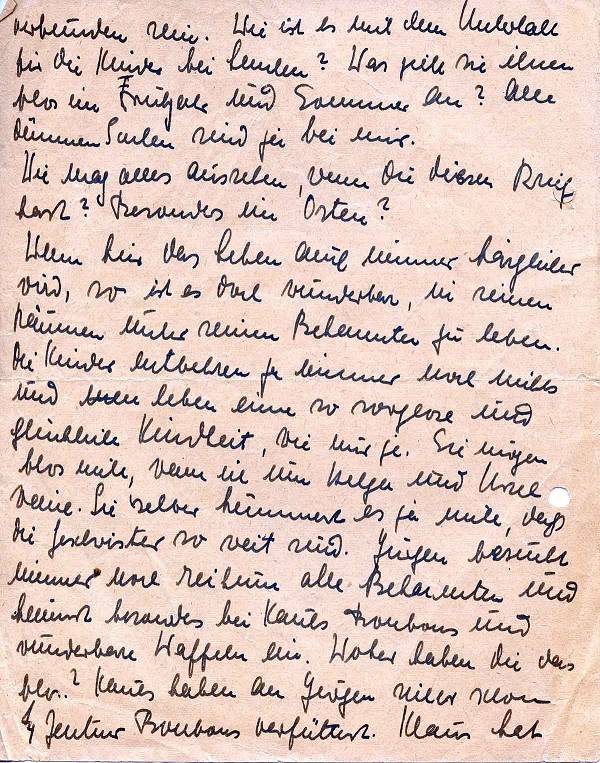 verbunden sein. Wie ist es mit dem
für die Kinder bei Euch? Was zieht sie ihnen
blos im Frühjahr und Sommer an? Alle
dünnen Sachen sind ja bei mir.
Wie mag alles aussehen, wenn Du diesen Brief
hast? Besonders im Osten?
Wenn hier das Leben auch immer kärglicher
wird, so ist es doch wunderbar, in seinen
Räumen unter seinen Bekannten zu leben.
Die Kinder entbehren ja immer noch nichts
und leben eine so sorglose und
glückliche Kindheit, wie nur je. Sie mögen
blos nicht, wenn ich um Helga und Ursel
weine. Sie selber kümmert es ja nicht, daß
die Geschwister so weit sind. Jürgen besucht
immer noch reihum alle Bekannten und
heimst besonders bei Kauls Bonbons und
wunderbare Waffeln ein. Woher haben die das
blos.? Kauls haben an Jürgen sicher schon
Zentner Bonbons verfüttert. Klaus hat